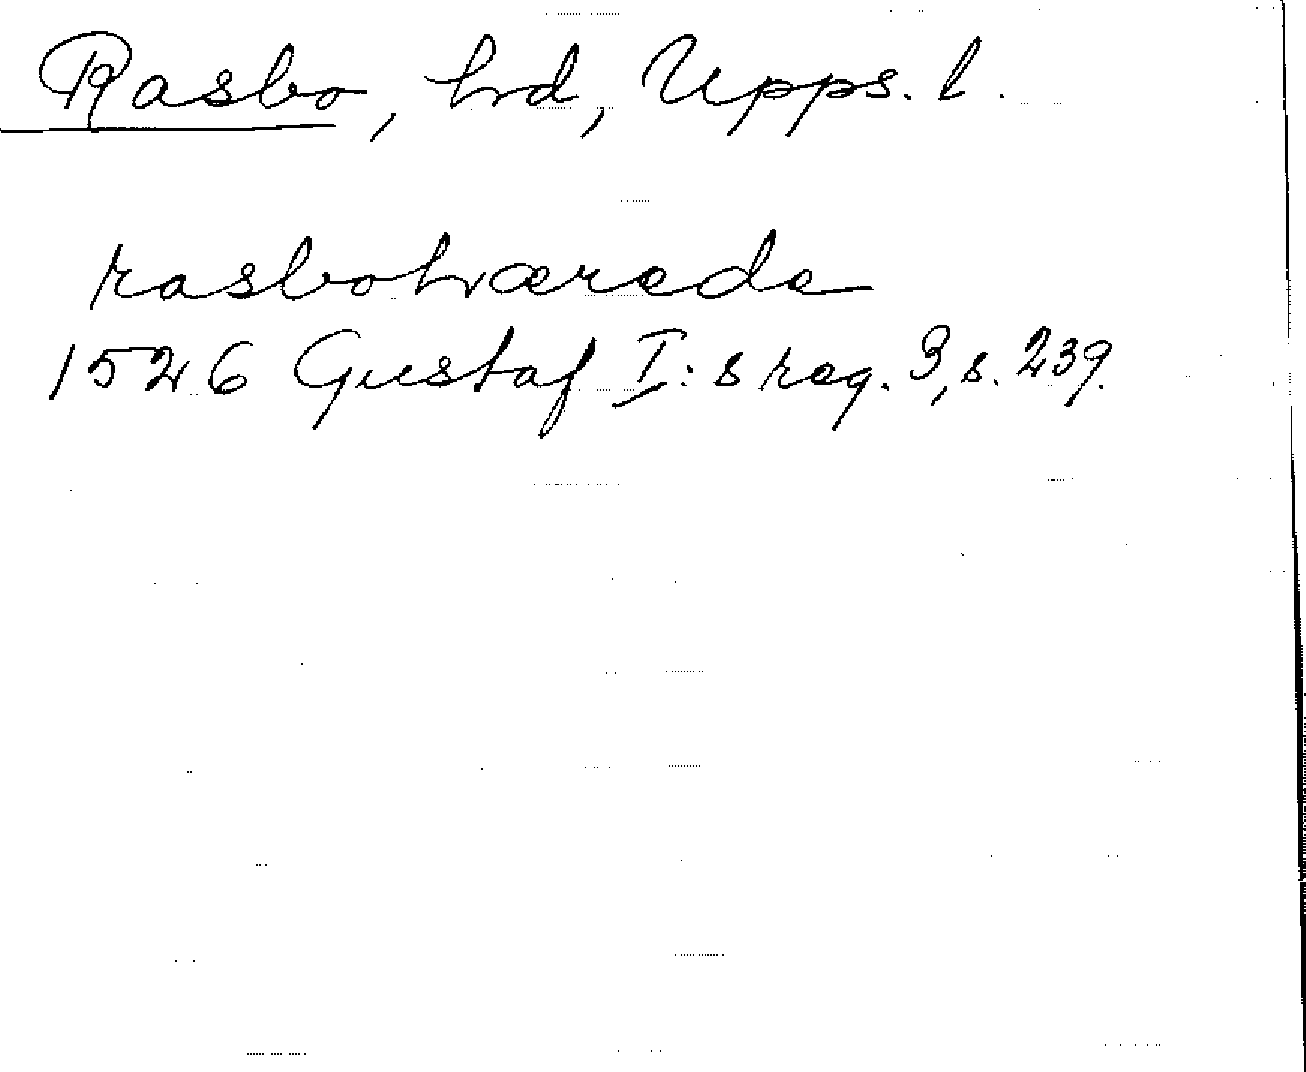 Rasbo, hd, Upps. l.
rasbohærade
1526 Gustaf I:s reg. 3, s. 239.